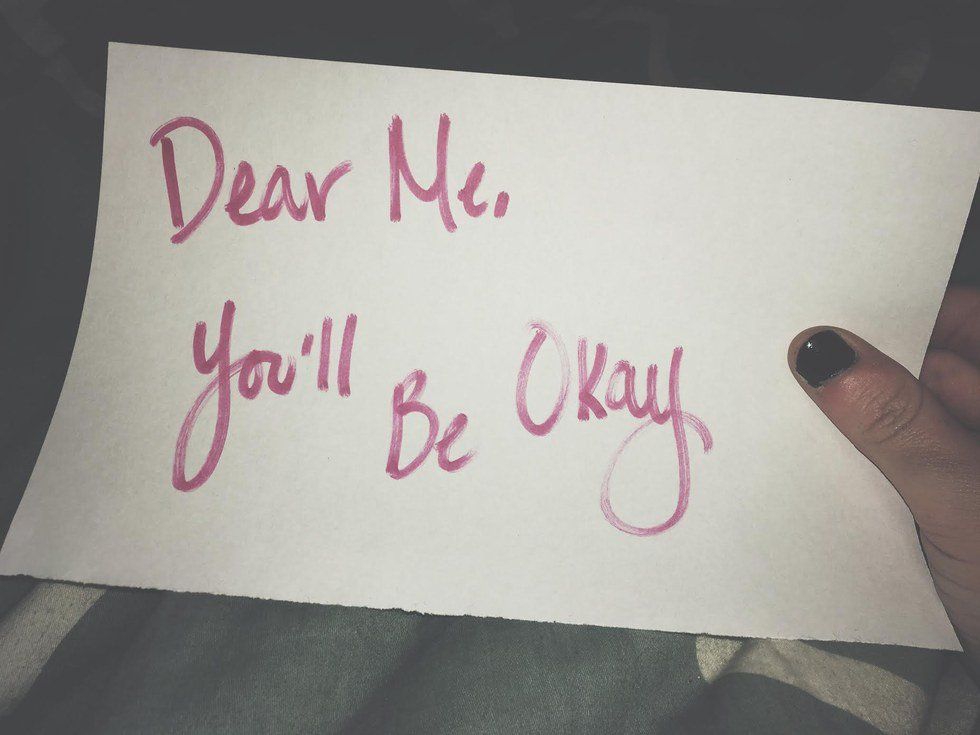 Dear Me.
You'll Be Okay